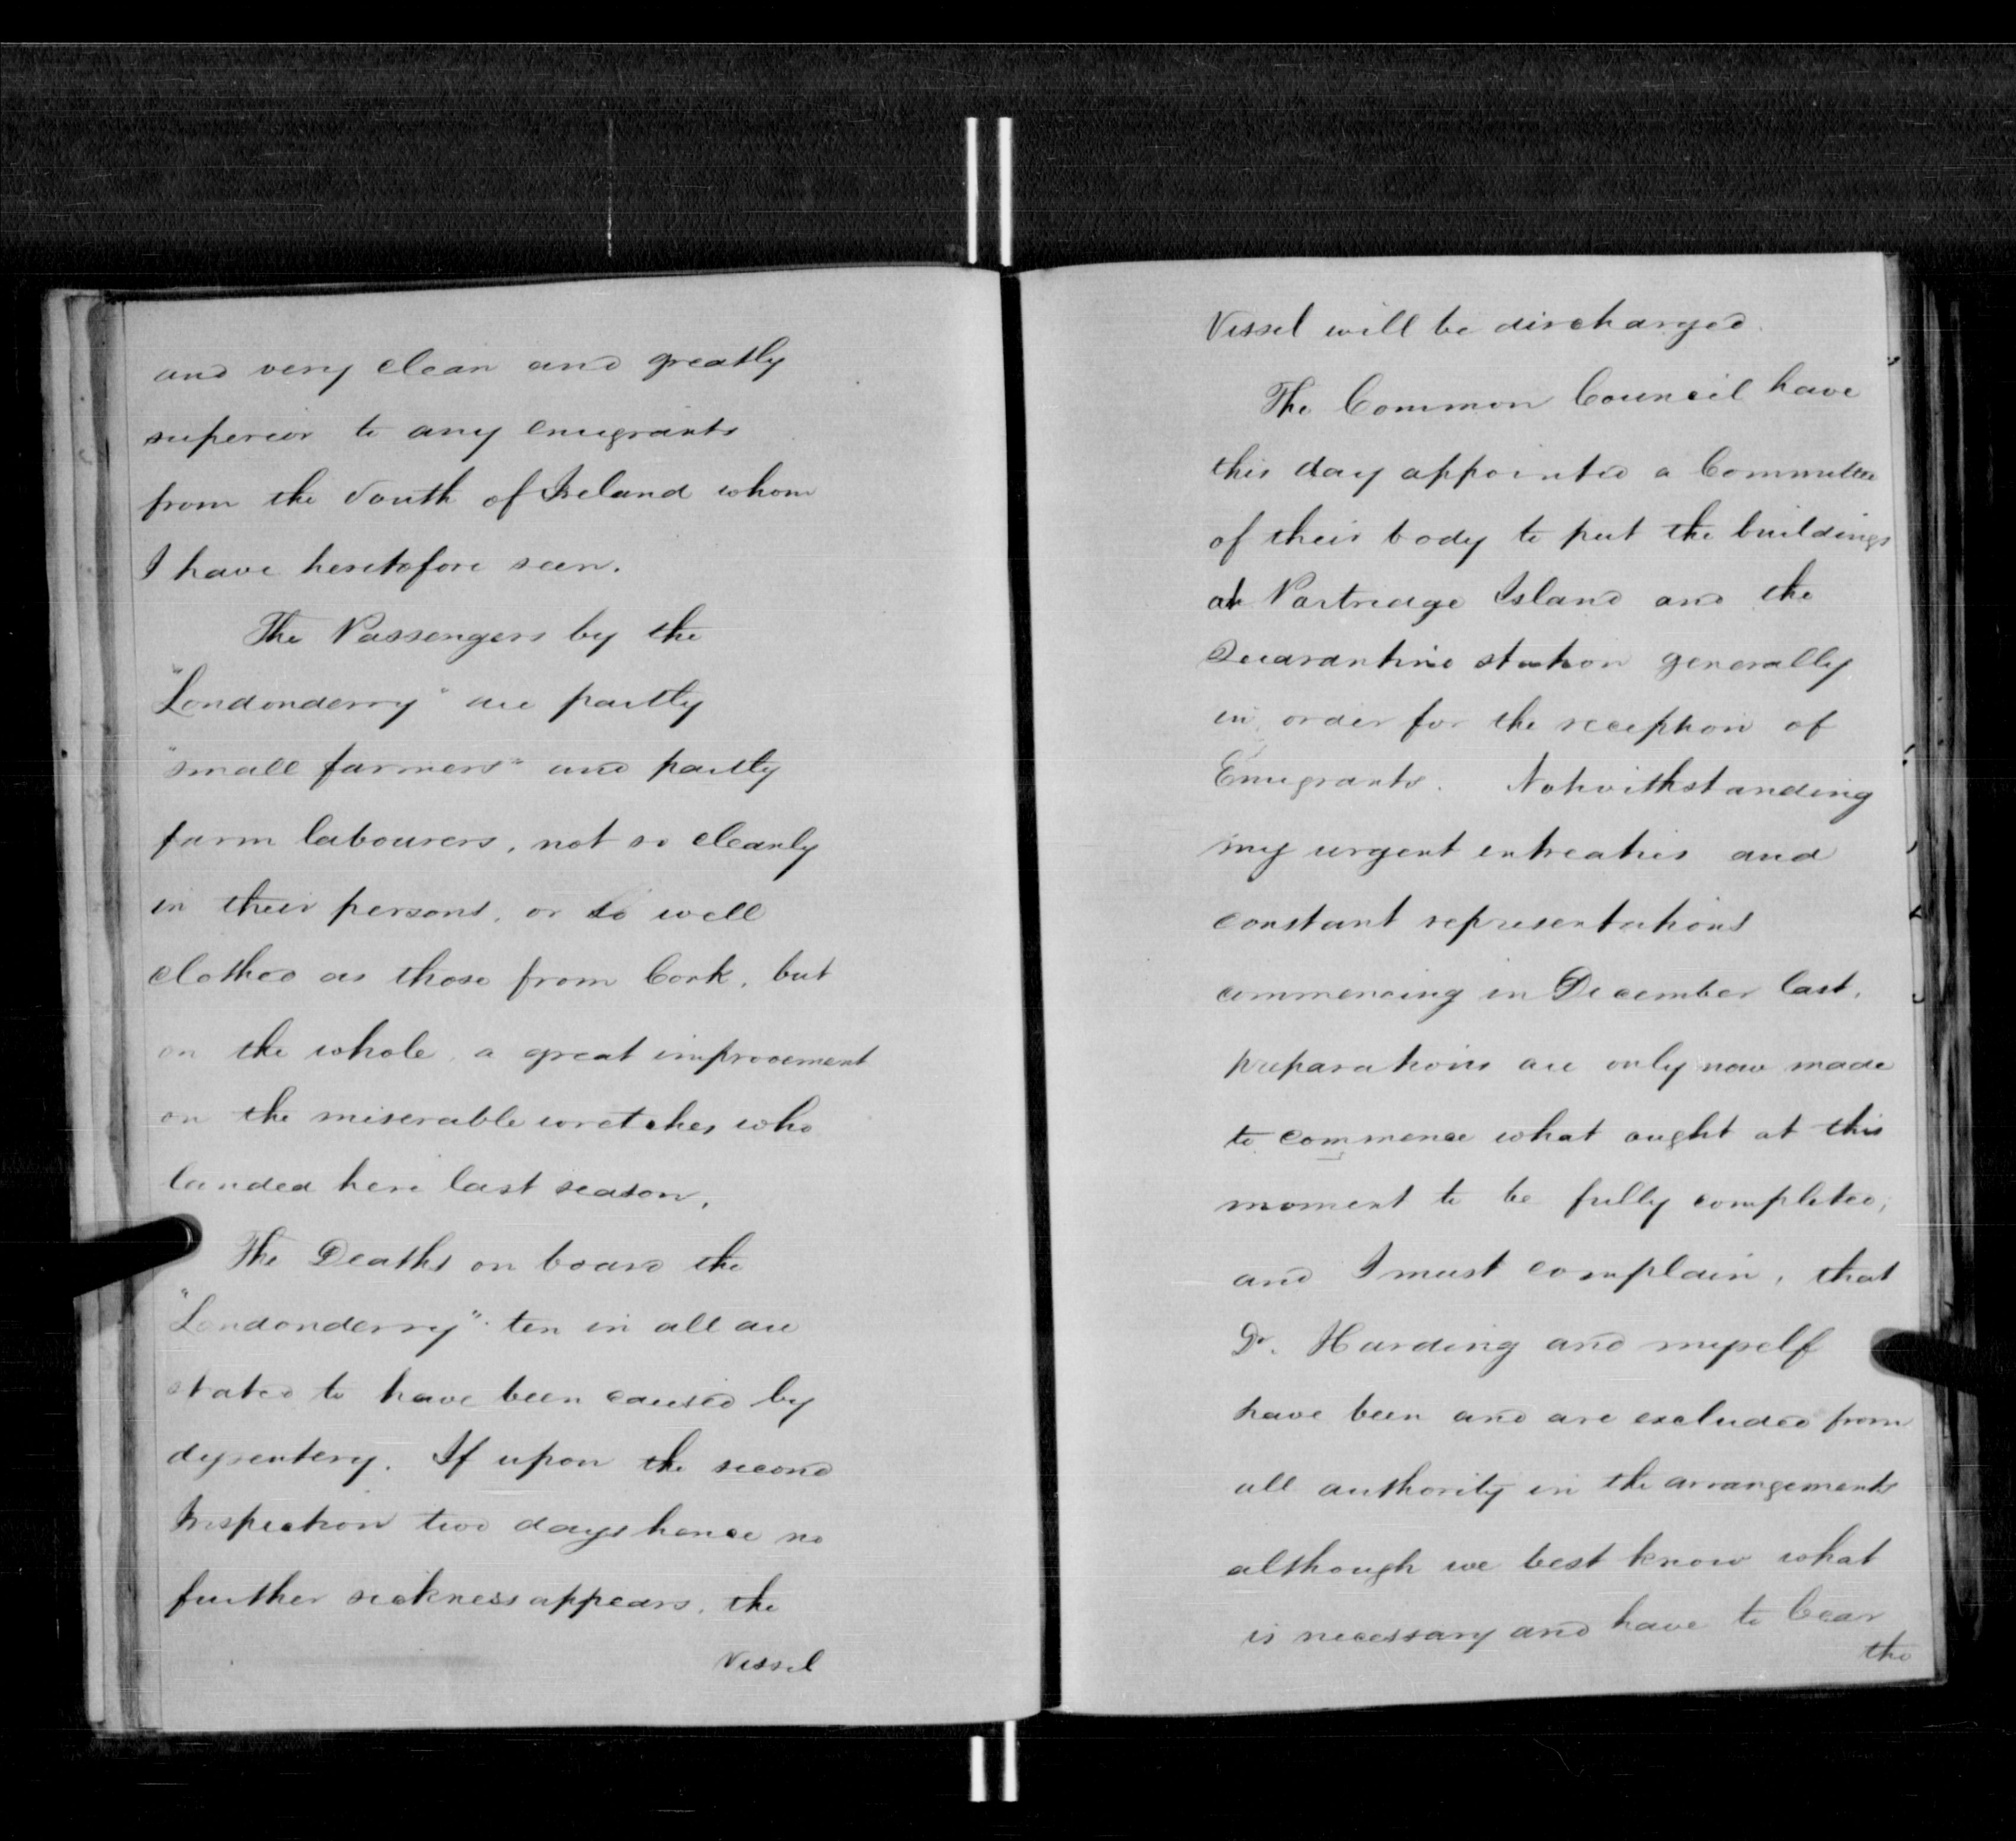 and very clean and greatly
superior to any emigrants
from the South of Ireland whom
I have heretofore seen.
The Passengers by the
"Londonderry" are partly
"small farmers" and partly
farm labourers, not so cleanly
in their persons, or so well
clothed as those from Cork, but
on the whole, a great improvement
on the miserable wretches who
landed here last season.
The Deaths on board the
"Londonderry" ten in all are
stated to have been caused by
dysentery. If upon the second
Inspection two days hence no
further sickness appears, the
Vessel
Vessel will be discharged.
The Common Council have
this day appointed a Committee
of their body to put the buildings
at Partridge Island and the
Quarantine station generally
in order for the reception of
Emigrants. Notwithstanding
my urgent entreaties and
constant representations
commencing in December last,
preparations are only now made
to commence what ought at this
moment to be fully completed;
and I must complain, that
Dr. Harding and myself
have been and are excluded from
all authority in the arrangements
although we best know what
is necessary and have to bear
the